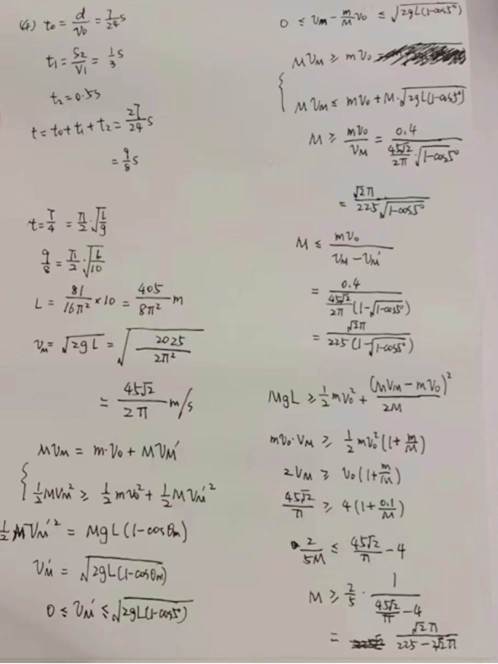 (4) t₀ = d/v₀ = 7/24 s
t₁ = S₂/V₁ = 1/3 s
t₂ = 0.5s
t = t₀ + t₁ + t₂ = 27/24 s
= 9/8 s
t = T/4 = π/2 · √(L/g)
9/8 = π/2 · √(L/10)
L = 81/16π² × 10 = 405/8π² m
vₘ = √(2gL) = √(2025/2π²)
= 45√2/2π m/s
MVM = m·V₀ + MVM′
{ ½MVM² ≥ ½mv₀² + ½MVM′²
½MVM′² = MgL(1-cosθm)
VM′ = √(2gL(1-cosθm))
0 ≤ VM′ ≤ √(2gL(1-cos5°))
0 ≤ VM - m/M V₀ ≤ √(2gL(1-cos5°))
{ MVM ≥ mV₀
MVM ≤ mV₀ + M·√(2gL(1-cos5°))
M ≥ mV₀/VM = 0.4/(45√2/2π · √(1-cos5°))
= √2π/(225√(1-cos5°))
M ≤ mV₀/(VM - VM′)
= 0.4/(45√2/2π (1-√(1-cos5°)))
= √2π/(225(1-√(1-cos5°)))
MgL ≥ ½mv₀² + (MVM - mV₀)²/2M
mV₀·VM ≥ ½mv₀²(1 + m/M)
2VM ≥ V₀(1 + m/M)
45√2/π ≥ 4(1 + 0.1/M)
2/5M ≤ 45√2/π - 4
M ≥ 2/5 · 1/(45√2/π - 4)
= √2π/(225 - 2√2π)